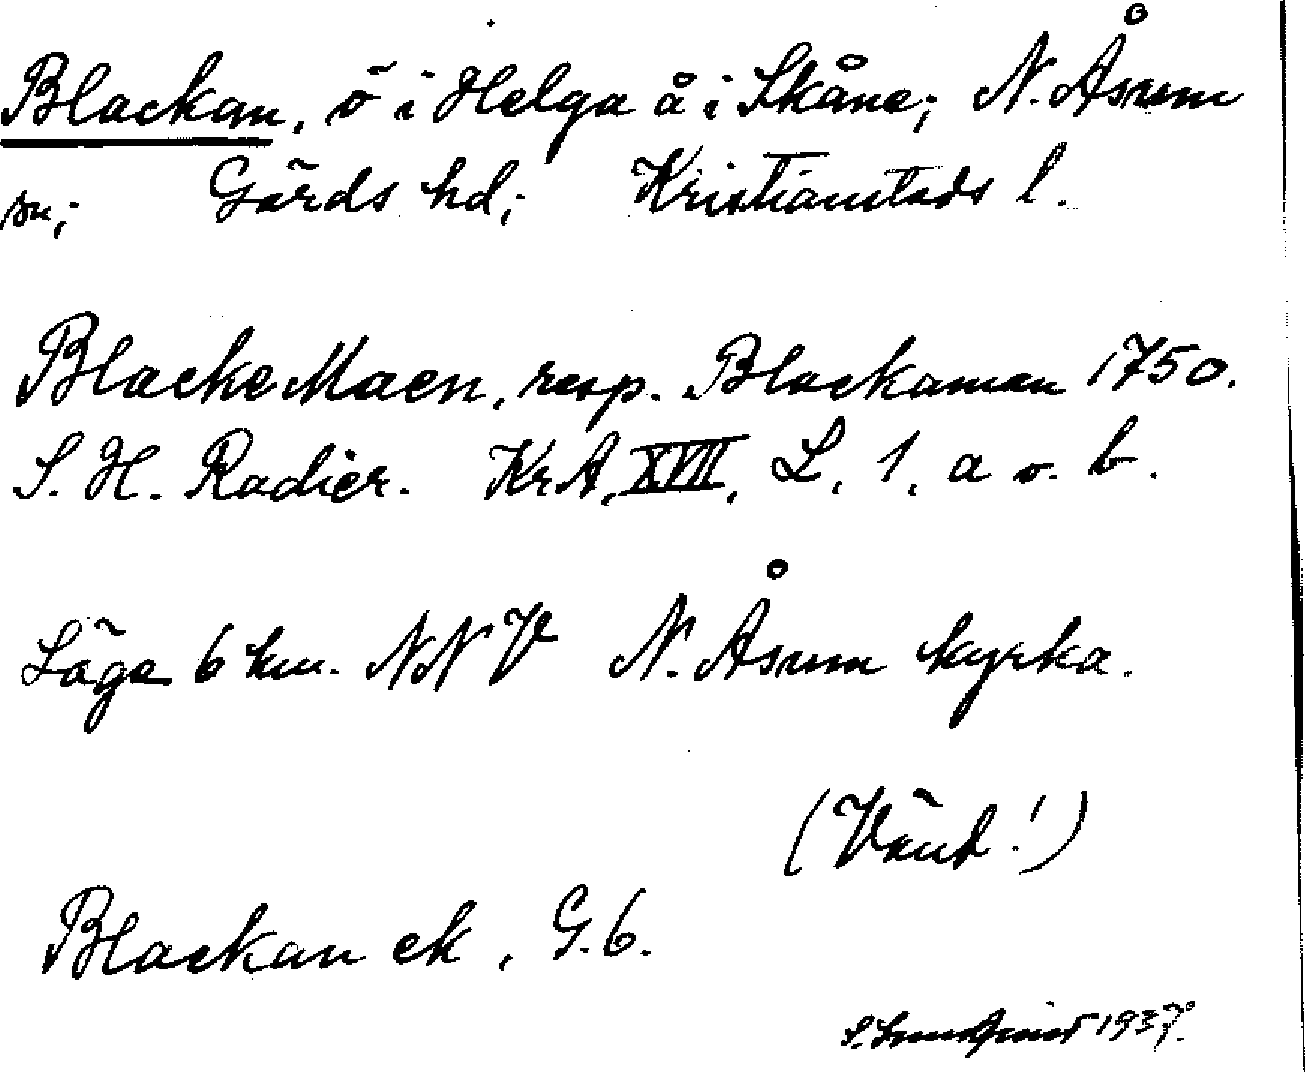 Blackan, ö i Helga å i Skåne; N. Åsum
sn; Gärds hd; Kristianstads l.
Blacke Maen, resp. Blackaman 1750.
S. H. Radier. KrA, XVII, L, 1, a o. b.
Läge 6 km. NNV N. Åsum kyrka.
(Vänd!)
Blackan ek, G. 6.
S. Sundqvist 1937.